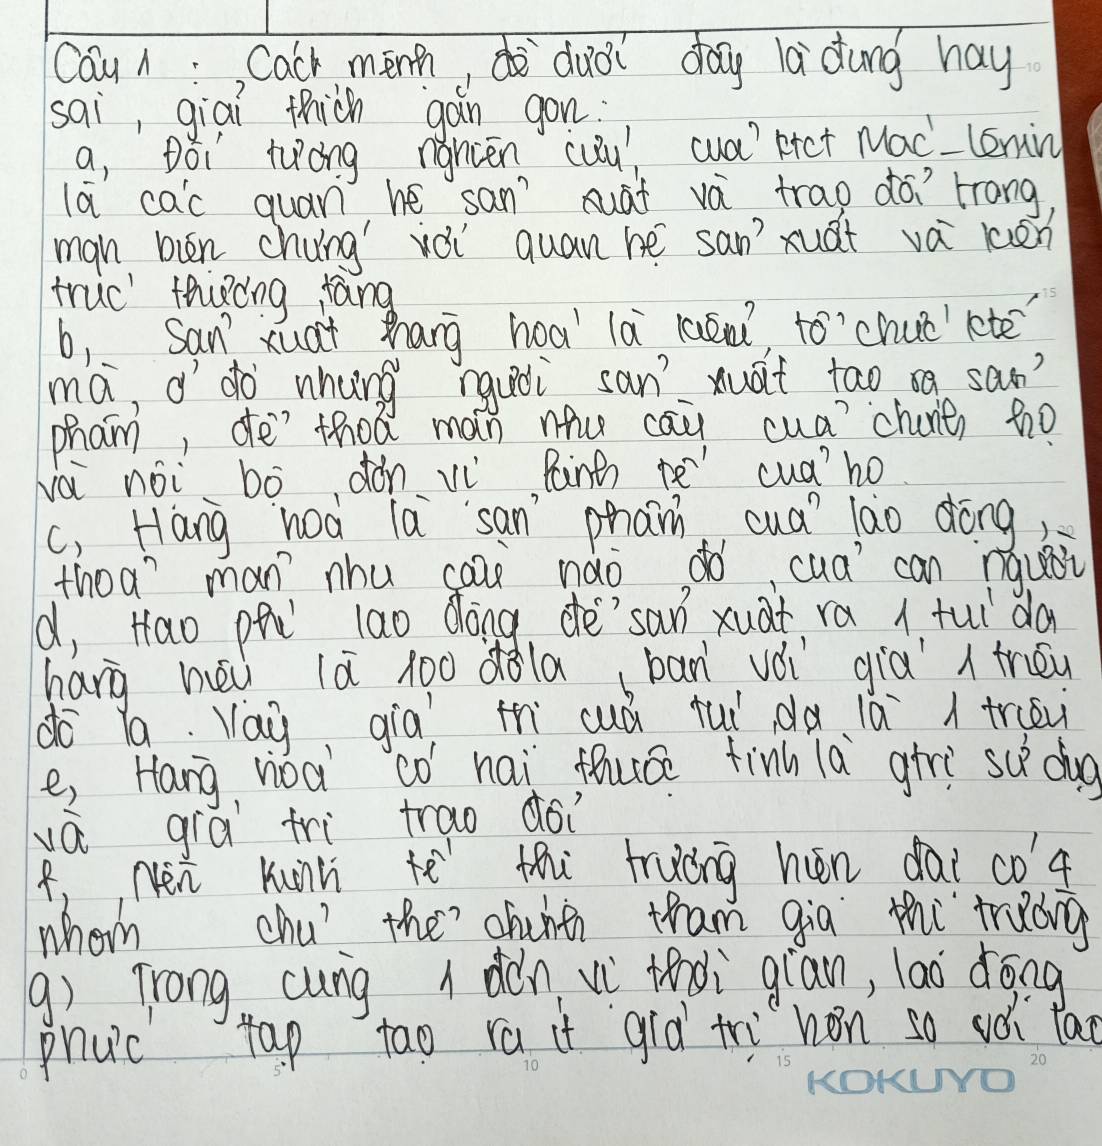 Câu 1 : Các mệnh đề dưới đây là đúng hay
sai, giải thích gắn gọn:
a, Đối tượng nghiên cứu của ktct Mac-Lênin
là các quan hệ sản xuất và trao đổi trong
mqh biện chứng với quan hệ sản xuất và kiến
trúc thượng tầng
b, Sản xuất hàng hoá là kiểu tổ chức ktế
mà ở đó những người sản xuất tạo ra sản
phẩm, để thoả mãn nhu cầu của chính họ
và nội bộ đơn vị kinh tế của họ.
c, Hàng hoá là sản phẩm của lao động,
thoả mãn nhu cầu nào đó của con người
d, Hao phí lao động để sản xuất ra 1 túi da
hàng hiệu là 100 đôla, bán với giá 1 triệu
đô la. Vậy giá trị của túi da là 1 triệu
e, Hàng hoá có hai thuộc tính là gtrị sử dụg
và giá trị trao đổi
f, Nền kinh tế thị trường hiện đại có 4
nhóm chủ thể chính tham gia thị trường
g) Trong cùng 1 đơn vị thời gian, lao động
phức tạp tạo ra ít giá trị hơn so với lao
0 5 10 15 20
KOKUYO